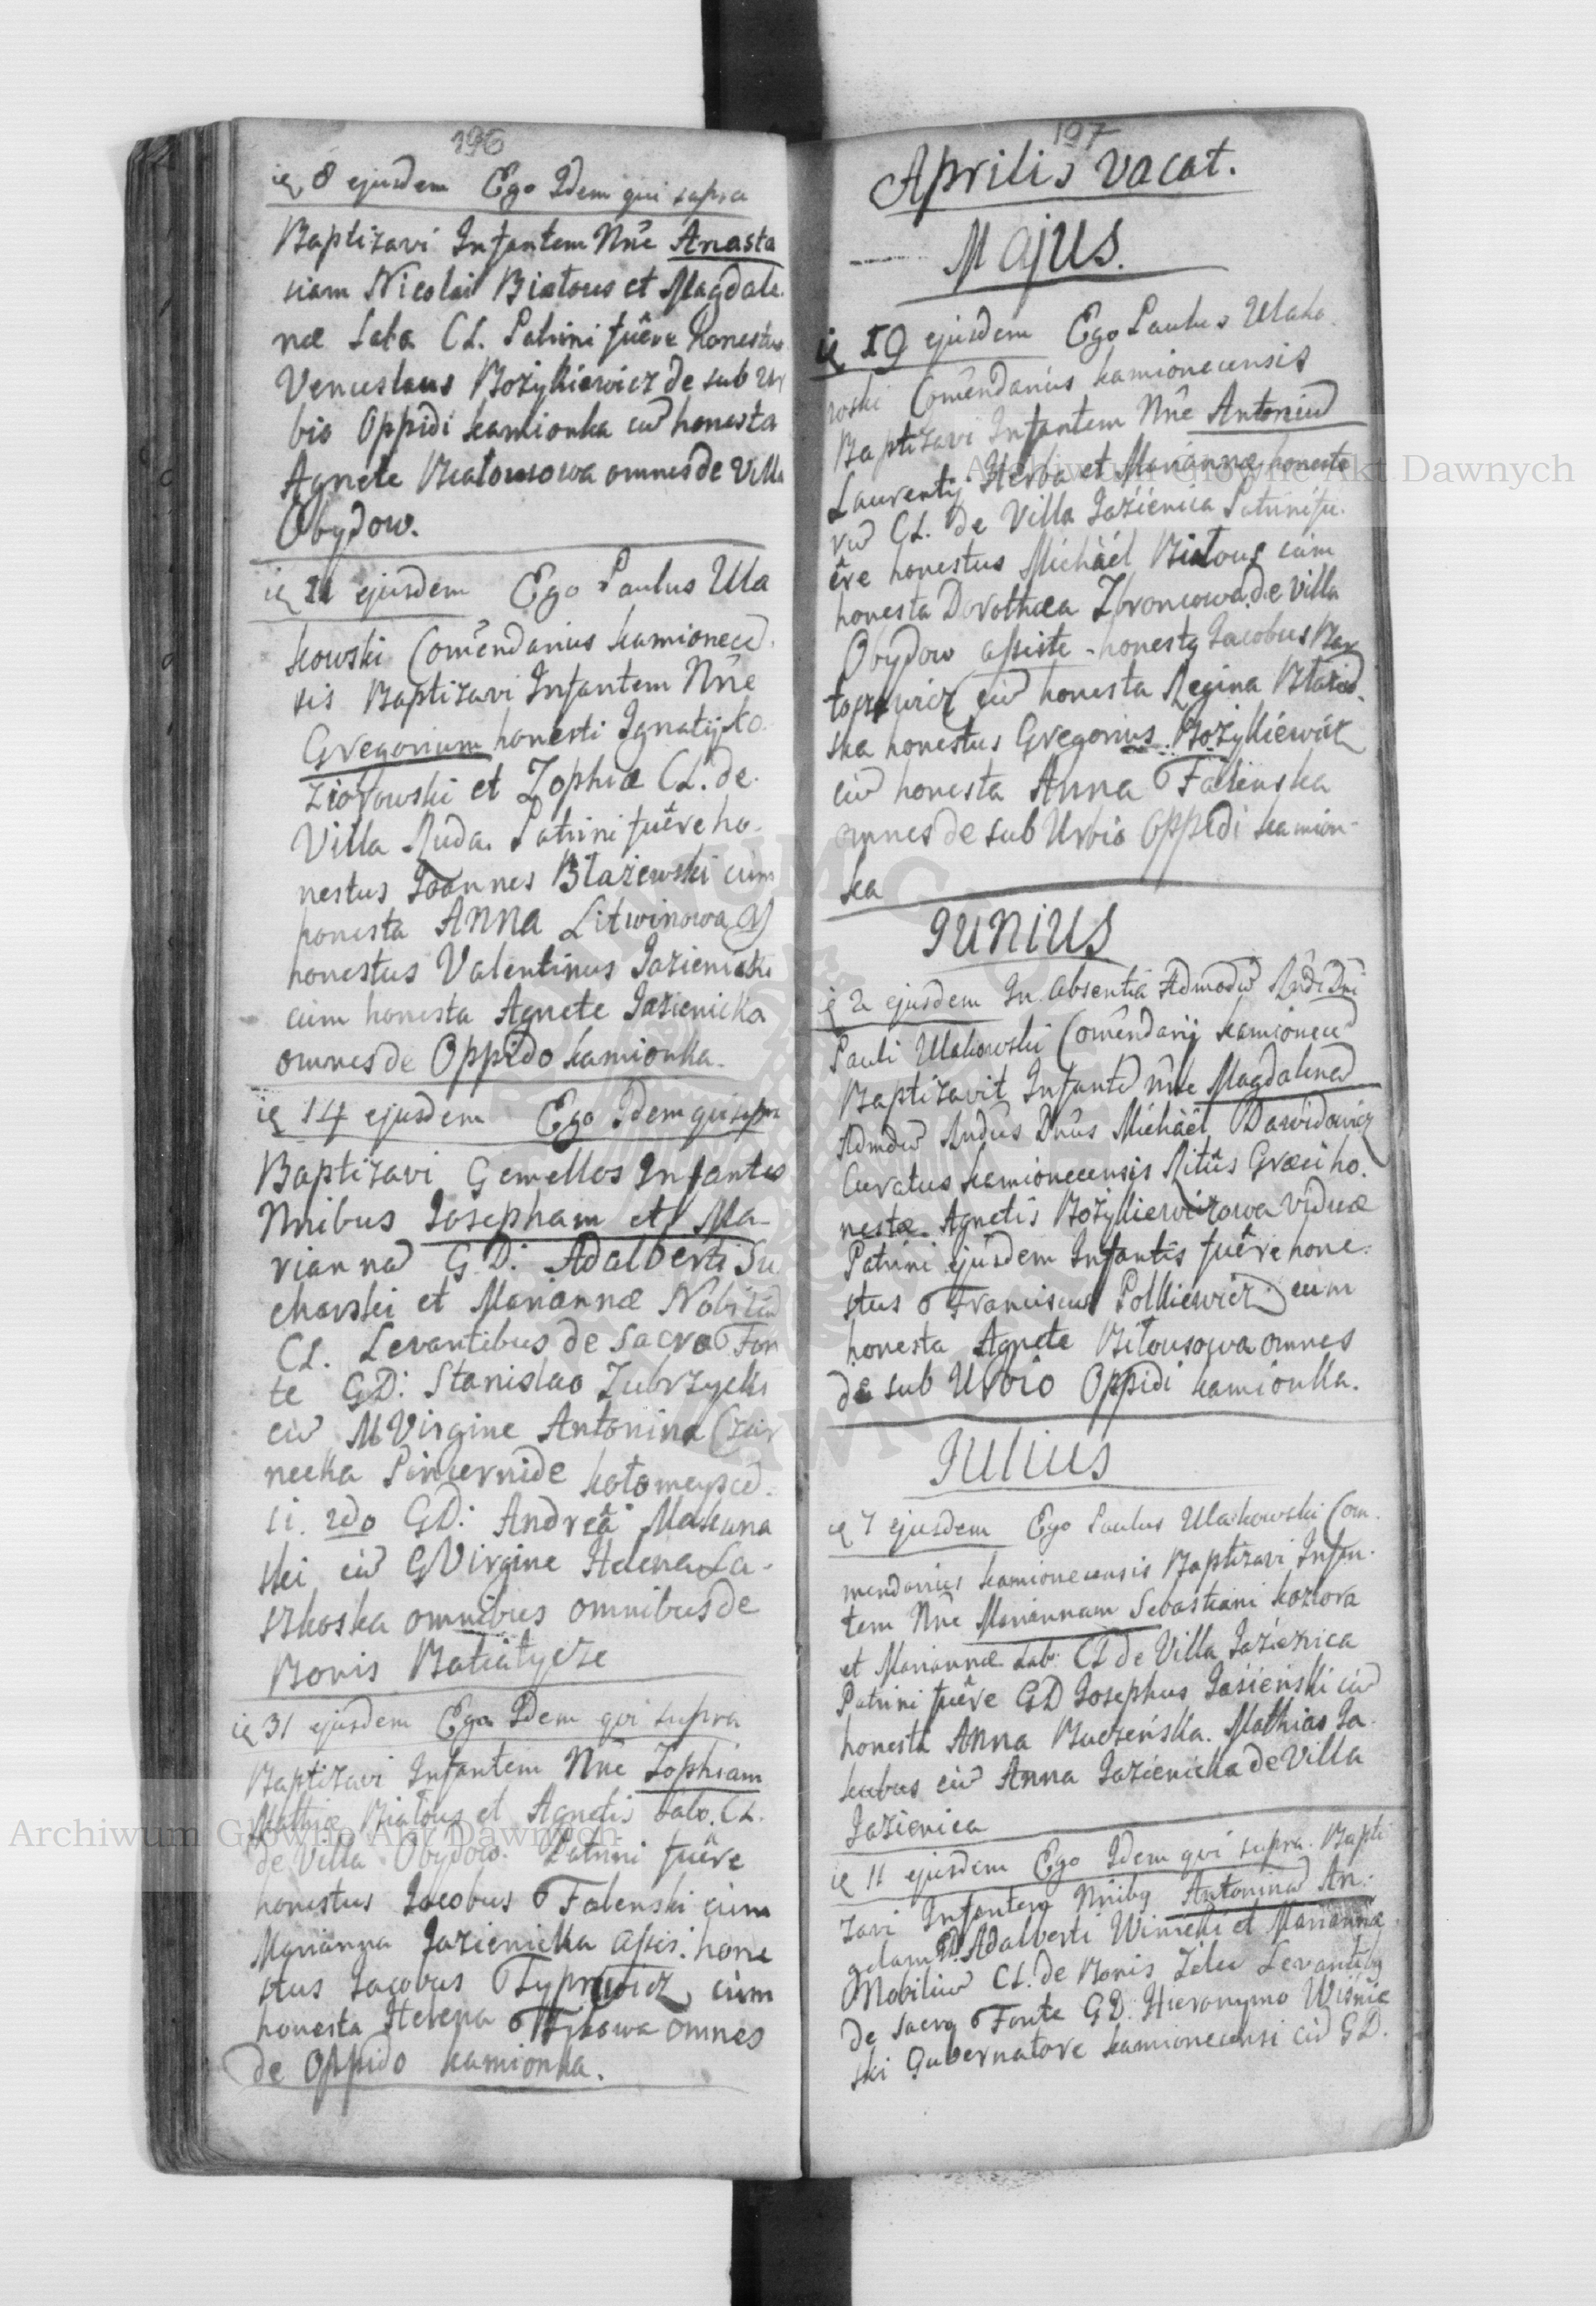 196
8 ejusdem Ego Idem qui supra
Baptizavi Infantem Nñe Anasta
siam Nicolai Białous et Magdale.
næ Laba CL. Patrini fuêre honestus
Venceslaus Bożykiewicz de sub Ur
bio Oppidi Kamionka cū honesta
Agnete Białousowa omnes de Villa
Obydow.
11 ejusdem Ego Paulus Ula
kowski Comẽndarius Kamionecē.
sis Baptizavi Infantem Nñe
Gregorium honesti Ignatij Ko.
ziorowski et Zophiæ CL. de.
Villa Ruda. Patrini fuêre ho.
nestus Joannes Błażewski cum
honesta Anna Litwinowa 2)
honestus Valentinus Jazienicki
cum honesta Agnete Jazienicka
omnes de Oppido Kamionka.
14 ejusdem Ego Idem qui supra
Baptizavi Gemellos Infantes
Nnibus Josepham et Ma-
riannā G.D: Adalberti Su
charski et Mariannæ Nobiliū
CL. Levantibus de Sacro Fon
te GD: Stanislao Zubrzycki
cū M Virgine Antonina Czar
necka Pincernide Kołomeysce.
si. 2do GD: Andreâ Makuna
ski cū G Virgine Helena La-
szkoska omnibus omnibus de
Bonis Batiatycze
31 ejusdem Ego Idem qvi supra
Baptizavi Infantem Nñe Zophiam
Mathiæ Białous et Agnetis Labo. CL.
de Villa Obydow. Patrini fuêre
honestus Jacobus Falenski cum
Marianna Jazienicka Assis. hone
stus Jacobus Typrowicz cum
honesta Helena omnes
de Oppido Kamionka.
197
Aprilis vacat.
Majus.
19 ejusdem Ego Paulus Ulako.
wski Comẽndarius Kamionecensis
Baptizavi Infantem Nñe Antoniū
Laurentij Herba et Mariannæ honesto
rū CL. de Villa Jazienica Patrini fu.
êre honestus Michaël Białous cum
honesta Dorothæa Zbroncowa de Villa
Obydow assiste - honestq Jacobus Bar
toszewicz cū honesta Regina Błażeō.
ska honestus Gregorius Bożykiewicz
cū honesta Anna Falenska
omnes de sub Urbio Oppidi Kamion-
ka
Junius
2 ejusdem In absentia Admodū Rñdi Dñi
Pauli Ulakowski Comẽndarij Kamionecē
Baptizavit Infantē nñe Magdalenā
Admdū Rndus Dnus Michaël Dawidowicz
Curatus Kamionecensis Ritûs Græci ho.
nestæ Agnetis Bożykiewiczowa Viduæ
Patrini ejusdem Infantis fuêre hone:
stus Franciscus Polkiewicz cum
honesta Agnete Biłousowa omnes
de sub Urbio Oppidi Kamionka.
Julius
7 ejusdem Ego Paulus Ulakowski Com.
mendarius Kamionecensis Baptizavi Infan.
tem Nñe Mariannam Sebastiani Koziora
et Mariannæ Lab: CL de Villa Jazienica
Patrini fuêre GD Josephus Jasieński cū
honesta Anna Buczeńska. Mathias Ja.
kubus cū Anna Jazienicka de Villa
Jazienica
11 ejusdem Ego Idem qvi supra. Bapti
zavi Infantem Nñibq Antoninā An.
gelam GD. Adalberti Winicki et Marianna
Nobiliū CL. de Bonis Żelec Levantibq
de Sacro Fonte GD. Hieronymo Wiśnie
ski Gubernatore Kamionecensi cū GD.
Archiwum Główne Akt Dawnych
Archiwum Główne Akt Dawnych